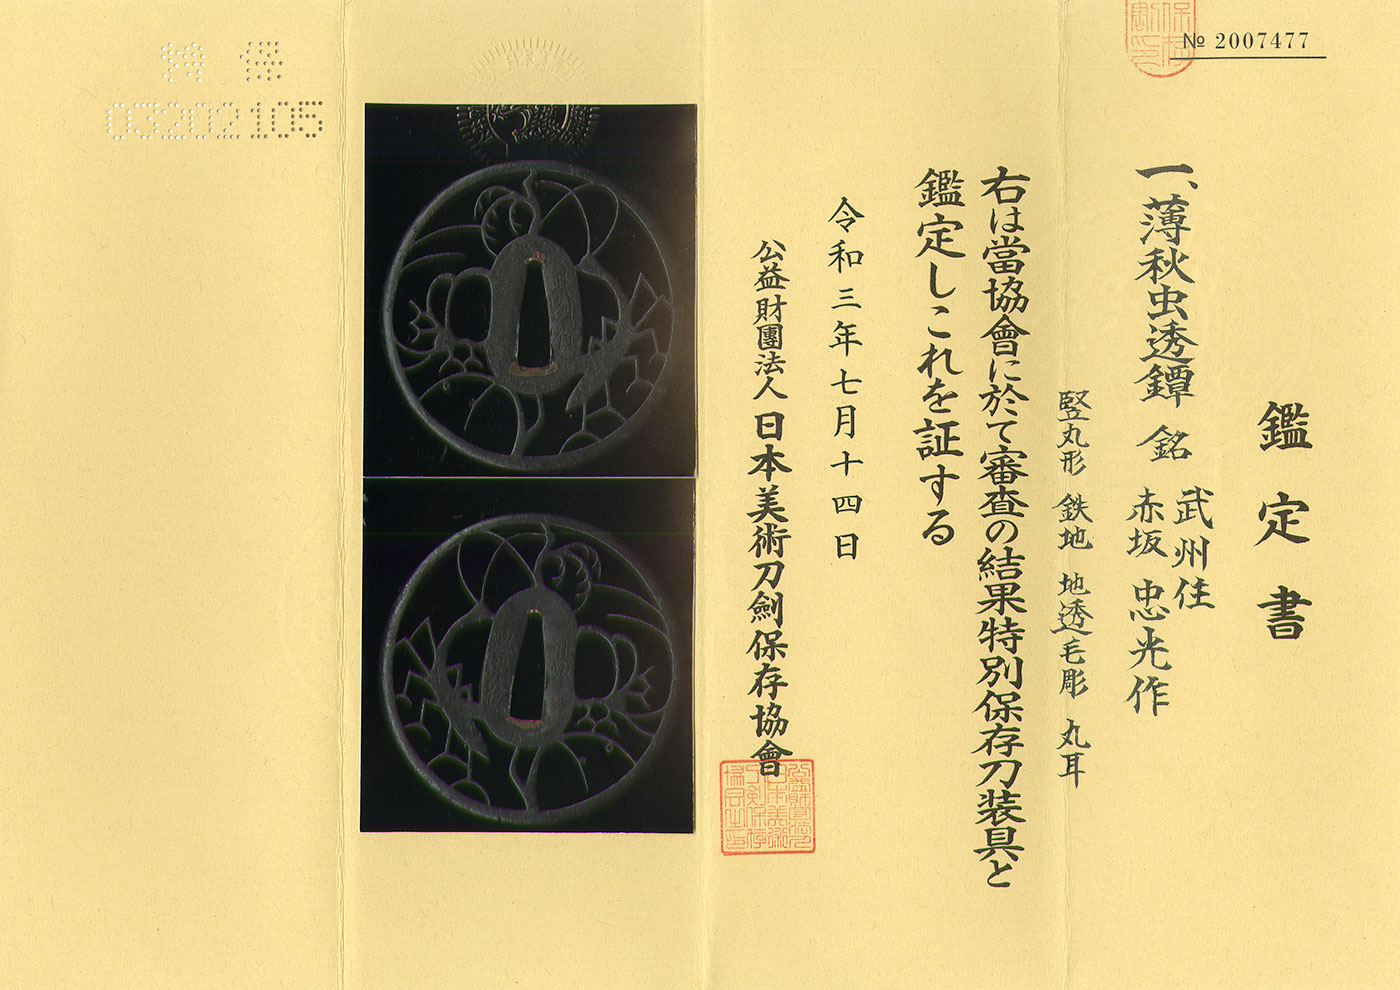 № 2007477
鑑定書
一、薄秋虫透鐔 銘 武州住
赤坂 忠光作
竪丸形 鉄地 地透毛彫 丸耳
右は當協會に於て審査の結果特別保存刀装具と
鑑定しこれを証する
令和三年七月十四日
公益財團法人 日本美術刀劍保存協會
03202105